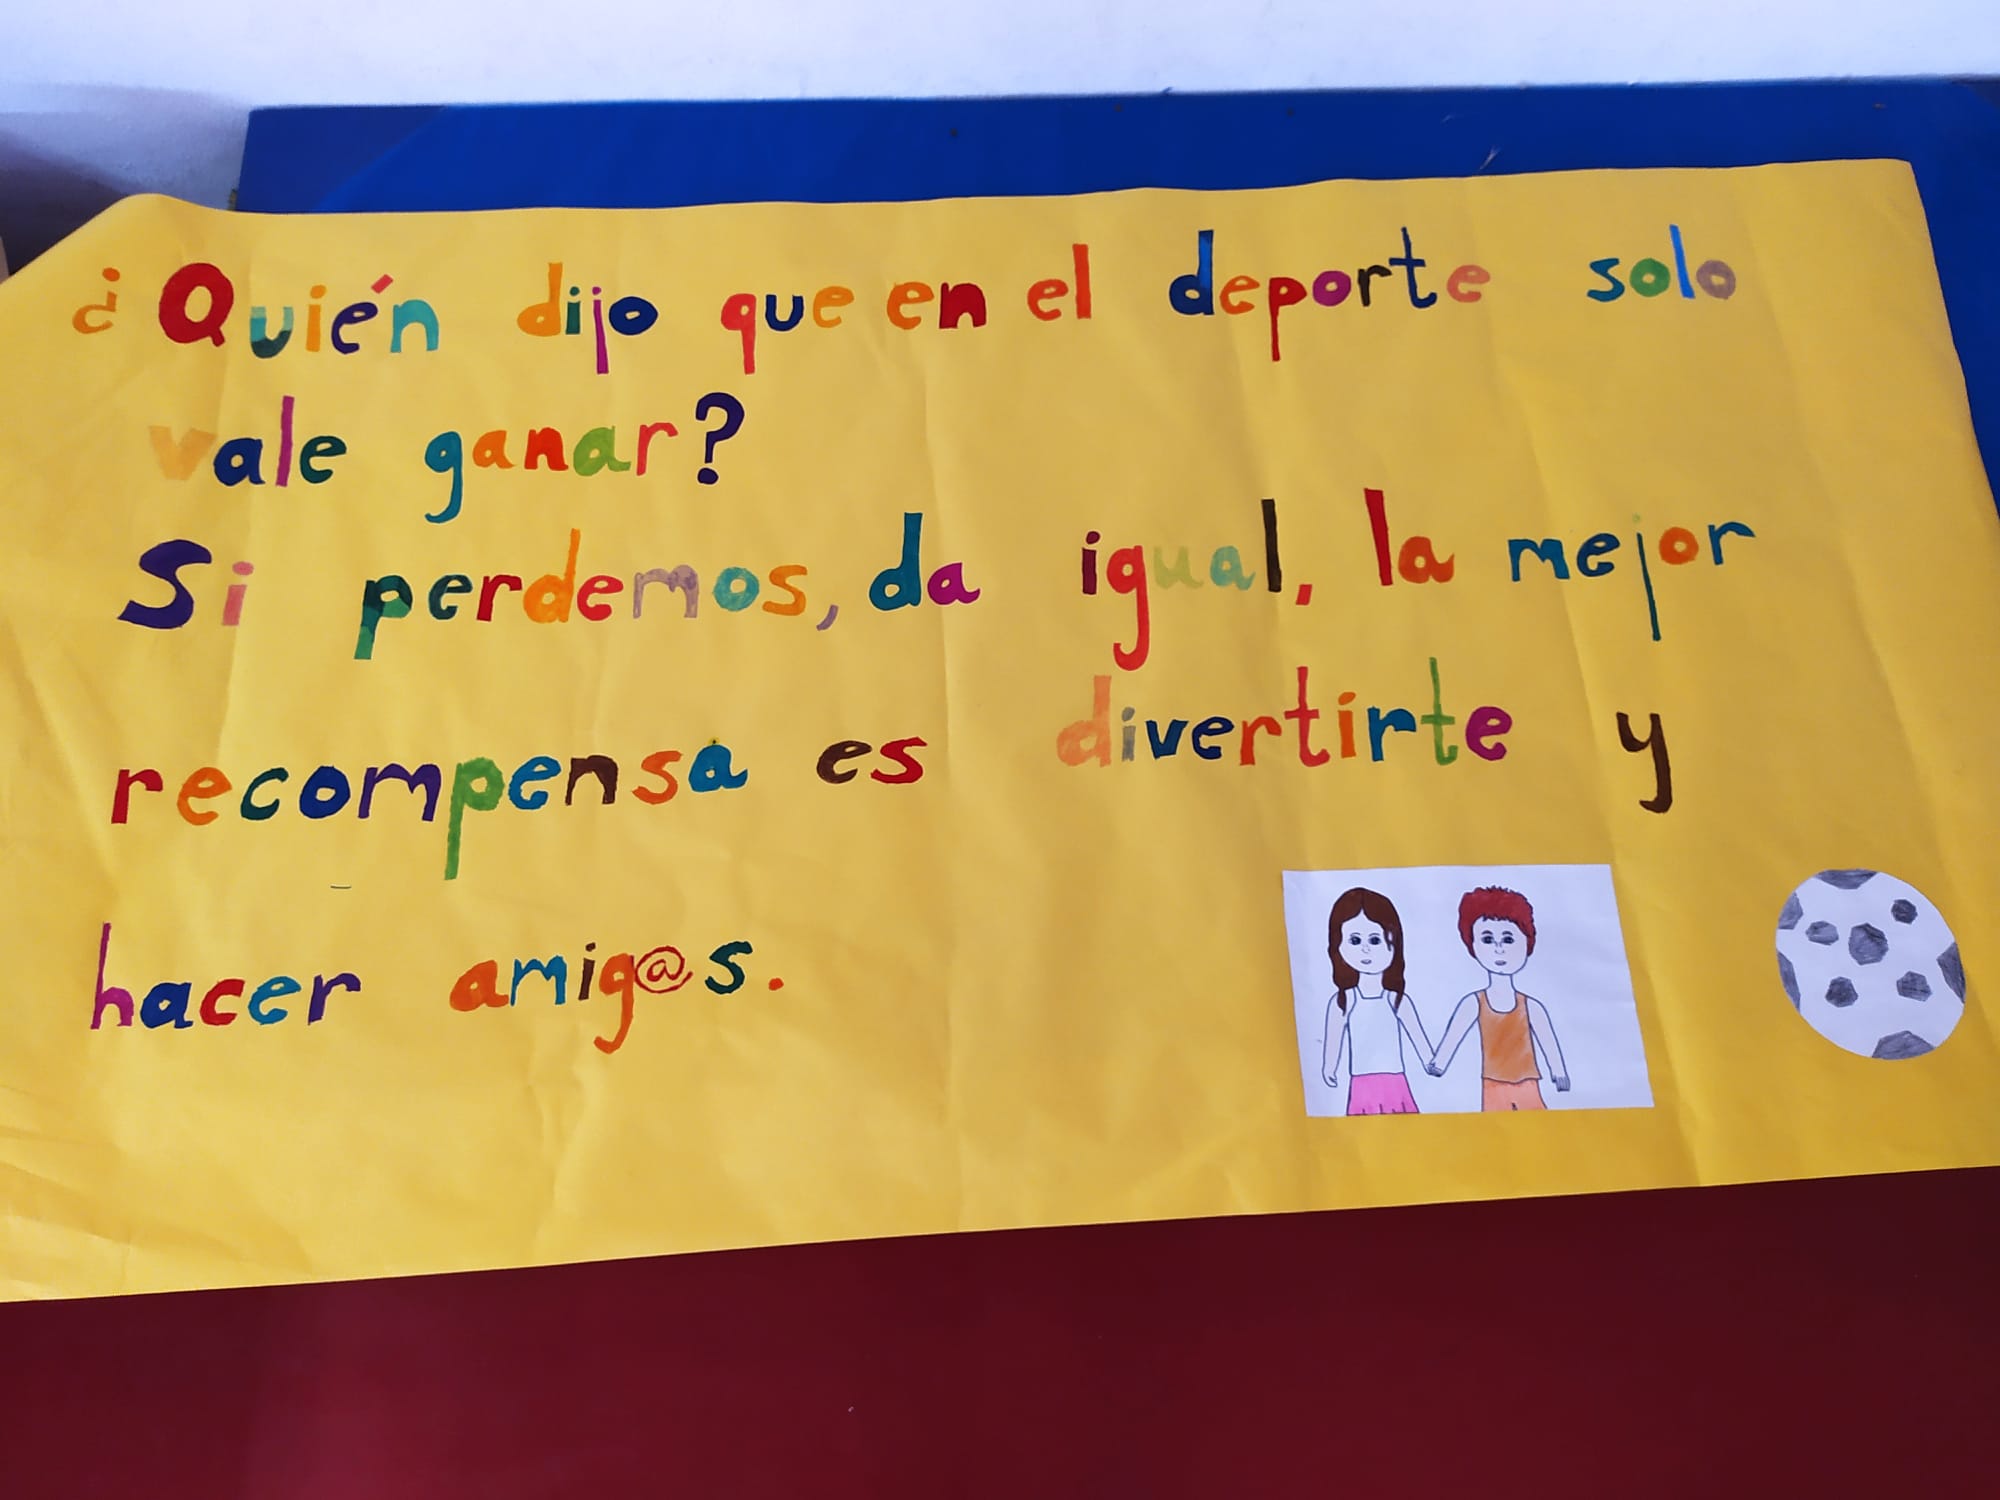 ¿Quién dijo que en el deporte solo
vale ganar?
Si perdemos, da igual, la mejor
recompensa es divertirte y
hacer amig@s.